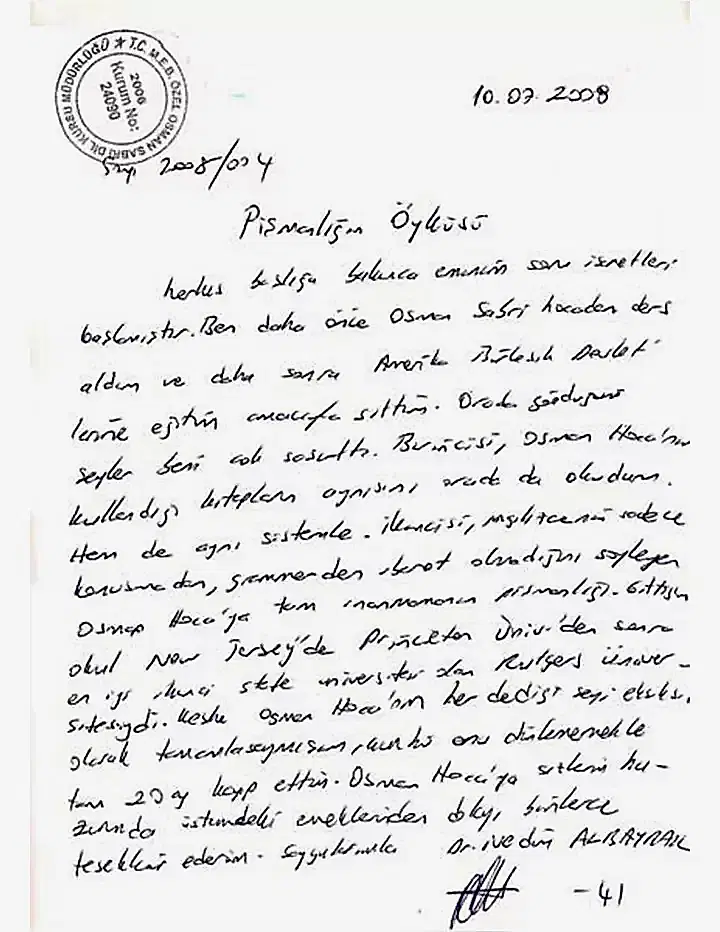 T.C. M.E.B. ÖZEL OSMAN SABRİ DİL KURSU MÜDÜRLÜĞÜ
2006
Kurum No:
24090
10.07.2008
Sayı 2008/004
Pişmalığın Öyküsü
herkes başlığa bakınca eminim soru işaretleri
başlamıştır. Ben daha önce Osman Sabri hocadan ders
aldım ve daha sonra Amerika Birleşik Devlet
lerine eğitim amacıyla gittim. Orada gördüğüm
şeyler beni çok şaşırttı. Birincisi, Osman Hoca'nın
kullandığı kitapların aynısını orada da okudum.
Hem de aynı sistemle. İkincisi, ingilizcenin sadece
konuşmadan, grammerden ibaret olmadığını söyleyen
Osman Hoca'ya tam inanmamanın pişmanlığı. Gittiğim
okul New Jersey'de Princeton Üniv.'den sonra
en iyi ikinci state üniversitesi olan Rutgers üniver-
sitesiydi. Keşke Osman Hoca'nın her dediği şeyi eksiksi
olarak tamamlasaymışım, çünkü onu dinlememekle
tam 20 ay kayıp ettim. Osman Hoca'ya sizlerin hu-
zurunda üstümdeki emeklerinden dolayı binlerce
teşekkür ederim. Saygılarımla Dr. ALBAYRAK
-41